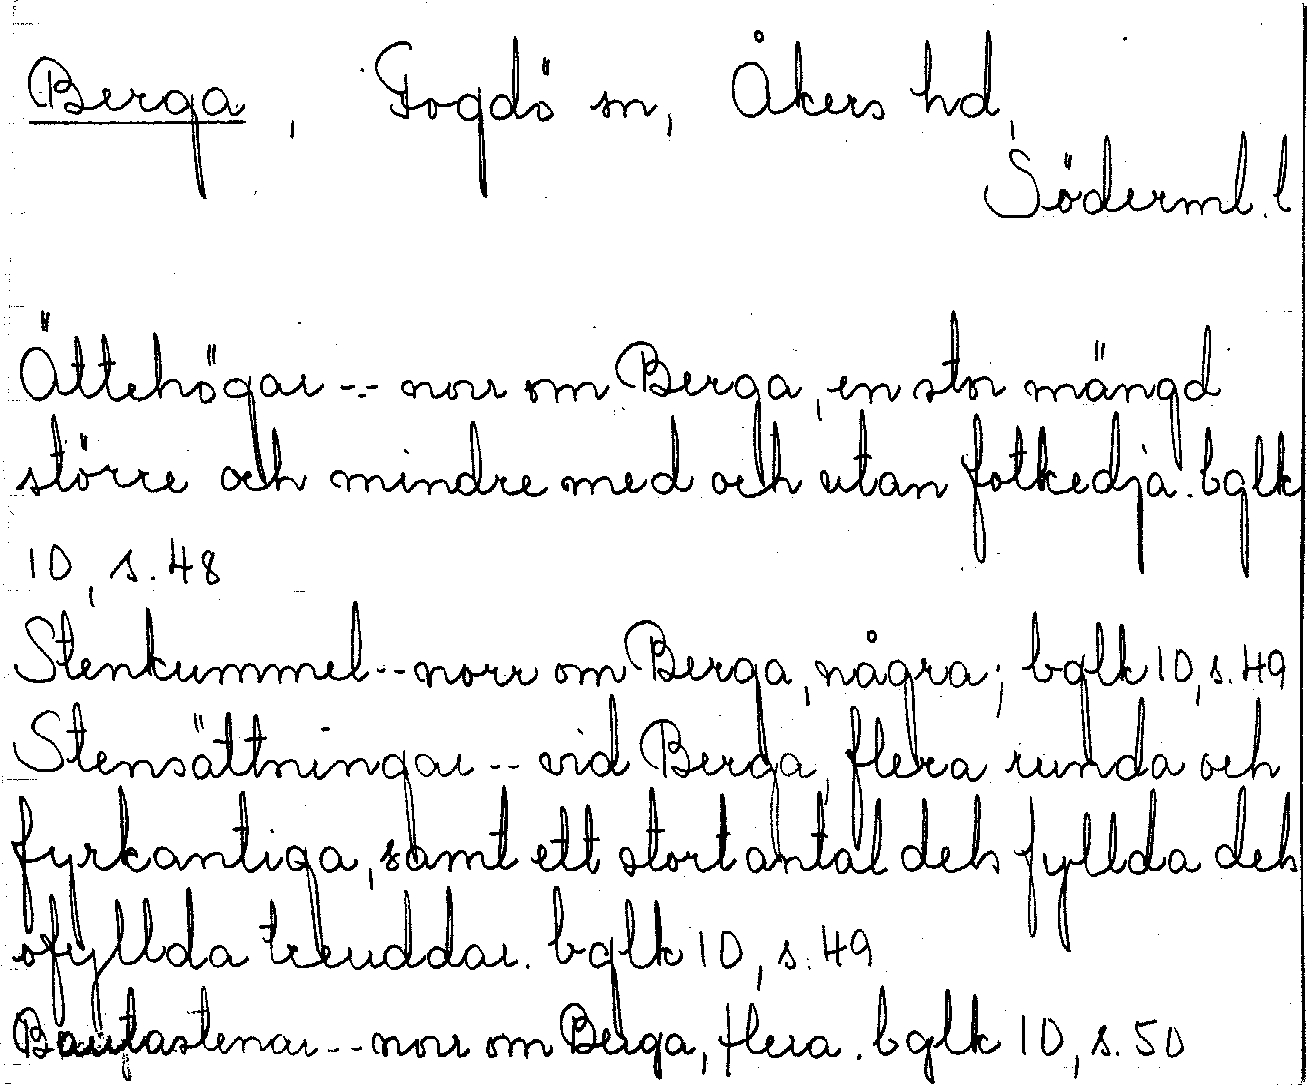 Berga, Fogdö sn, Åkers hd,
Söderml. l
Ättehögar -- norr om Berga, en stor mängd
större och mindre med och utan fotkedja. bglk
10, s. 48
Stenkummel -- norr om Berga, några; bglk 10, s. 49
Stensättningar -- vid Berga, flera runda och
fyrkantiga, samt ett stort antal dels fyllda dels
ofyllda treuddar. bglk 10, s. 49
Bautastenar -- norr om Berga, flera. bglk 10, s. 50